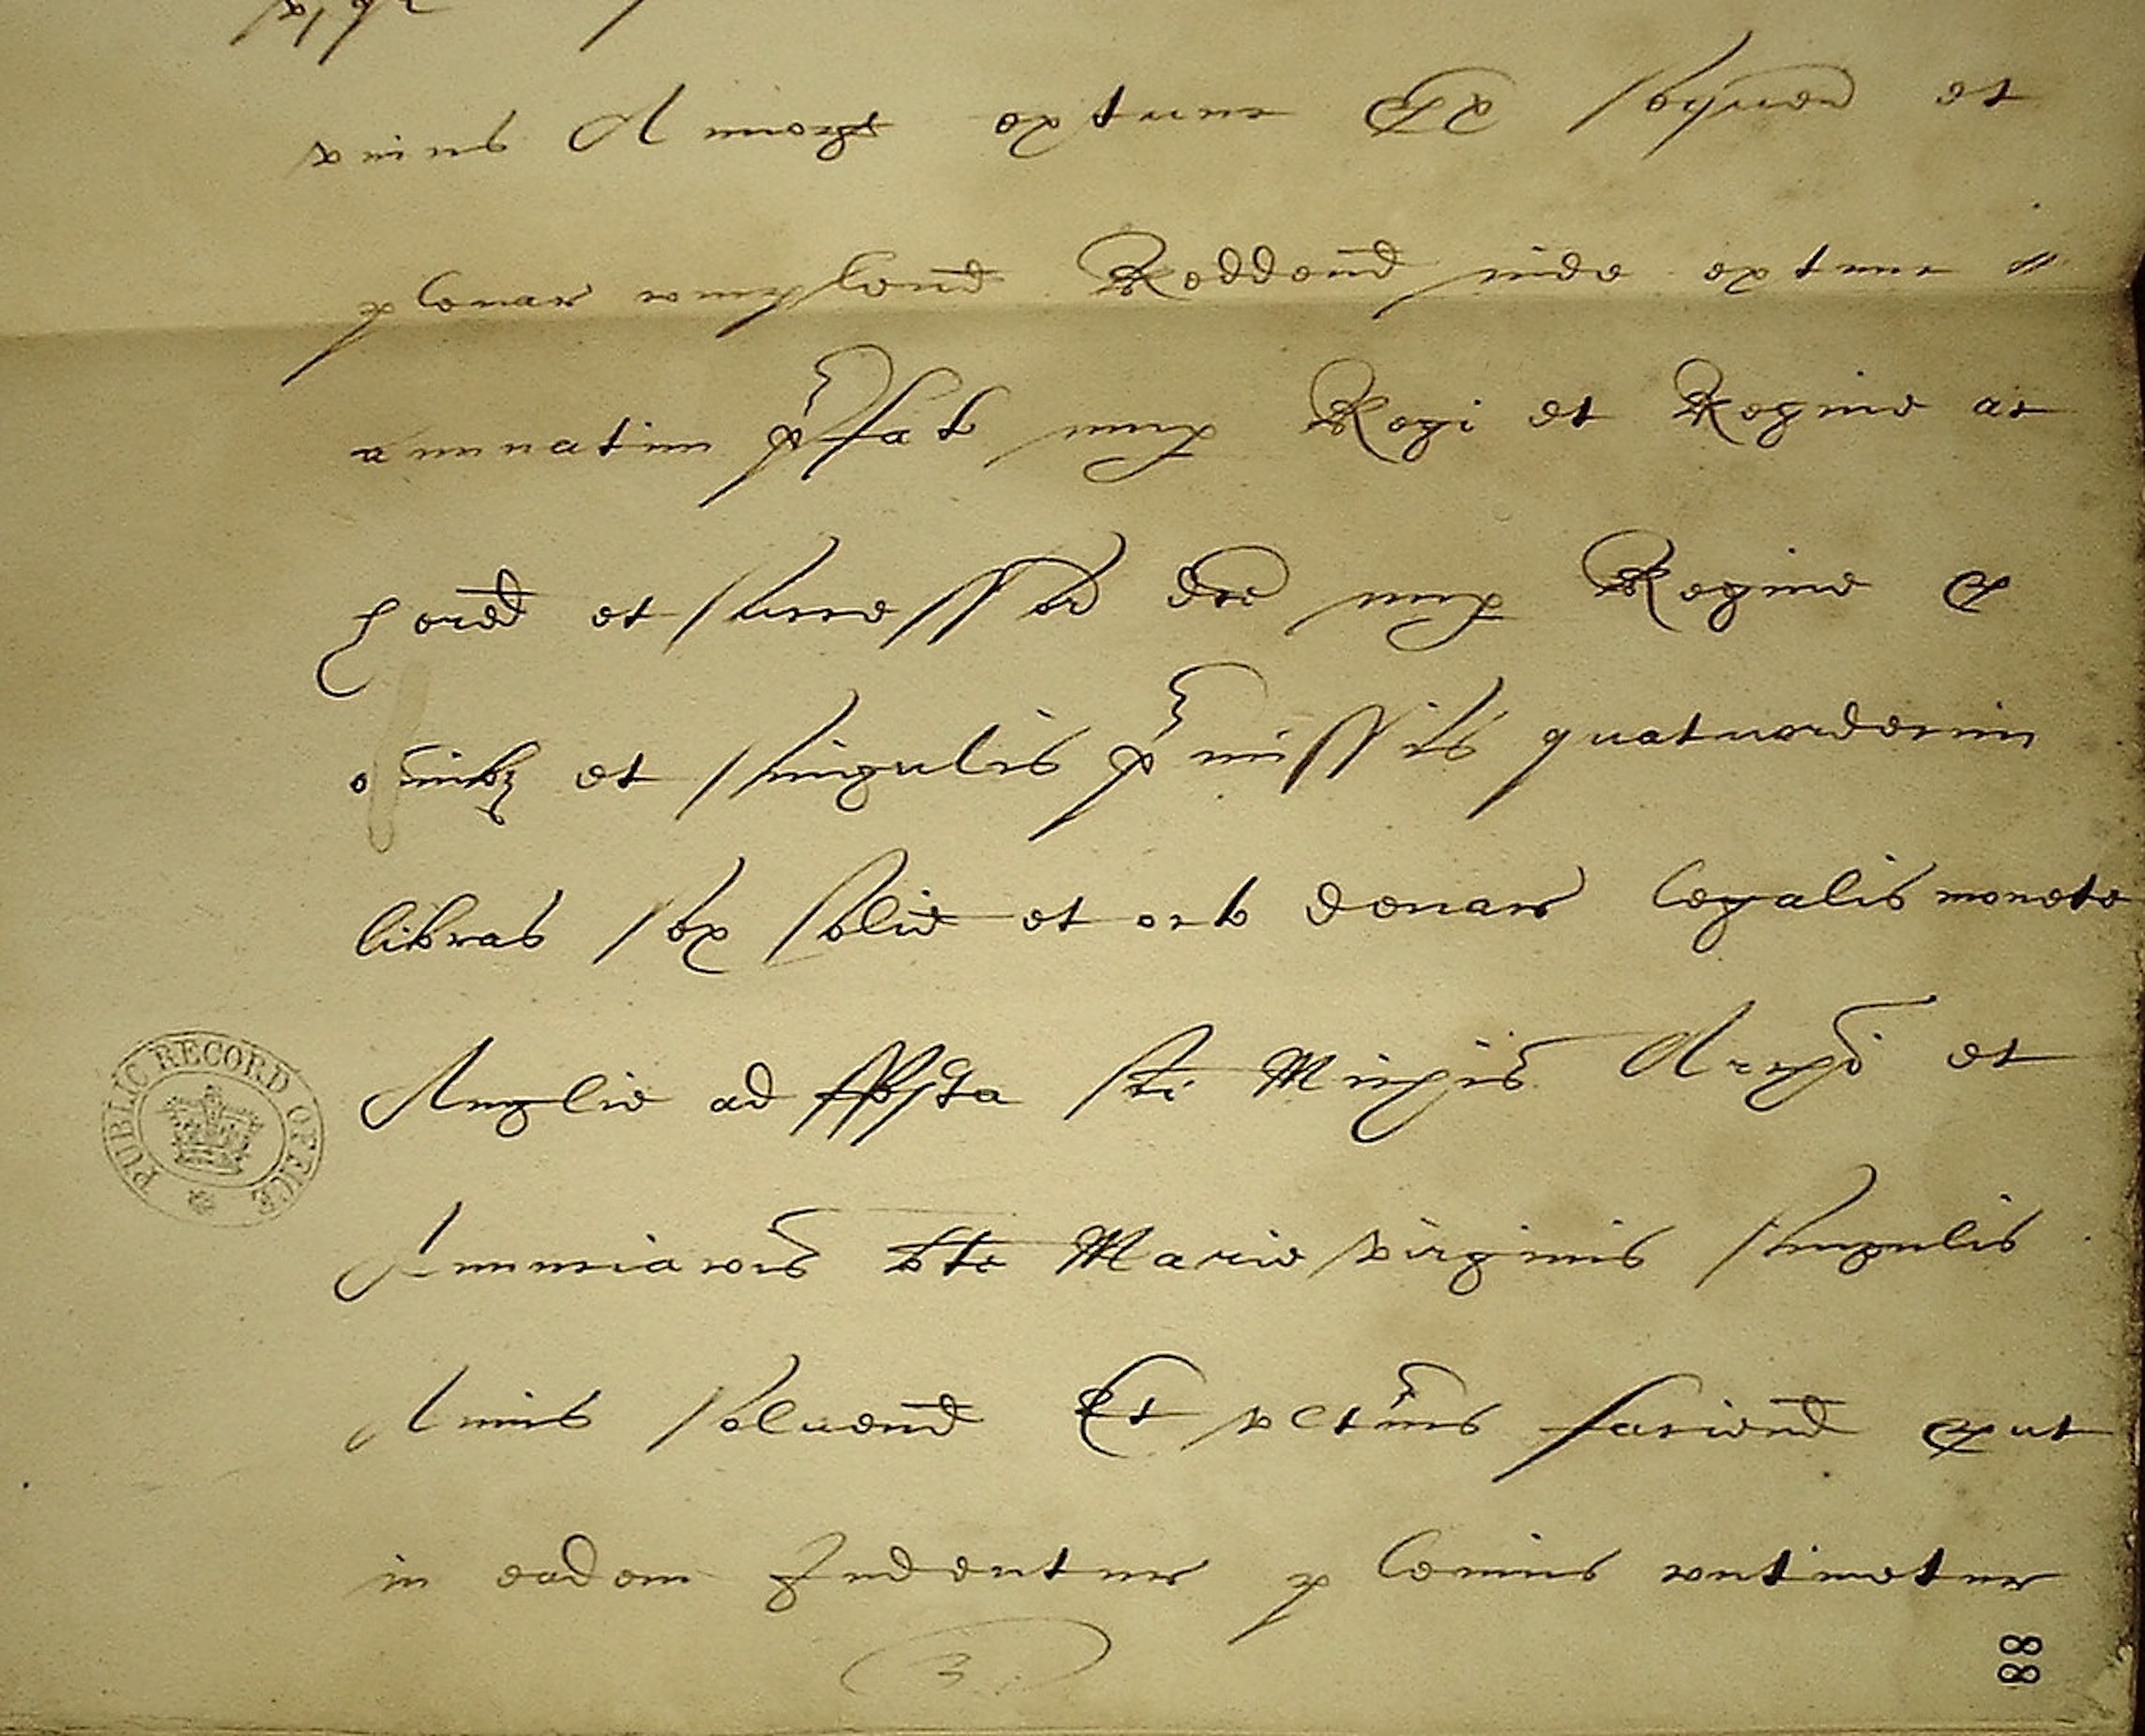 unius Annor extunc & sequen et
plenar complend Reddend inde extunc
annuatim p̃fat nup Regi et Regine ac
hered et Successor dce nup Regine p
omibz et singulis p̃missis quatuordecim
libras sex solid et octo denar legalis monete
Anglie ad ffesta Sci Michis Archi et
Annunciacois bte Marie virginis singulis
Annis solvend Et alternis faciend put
in eadem Indentur plenius continetur
PUBLIC RECORD OFFICE
88